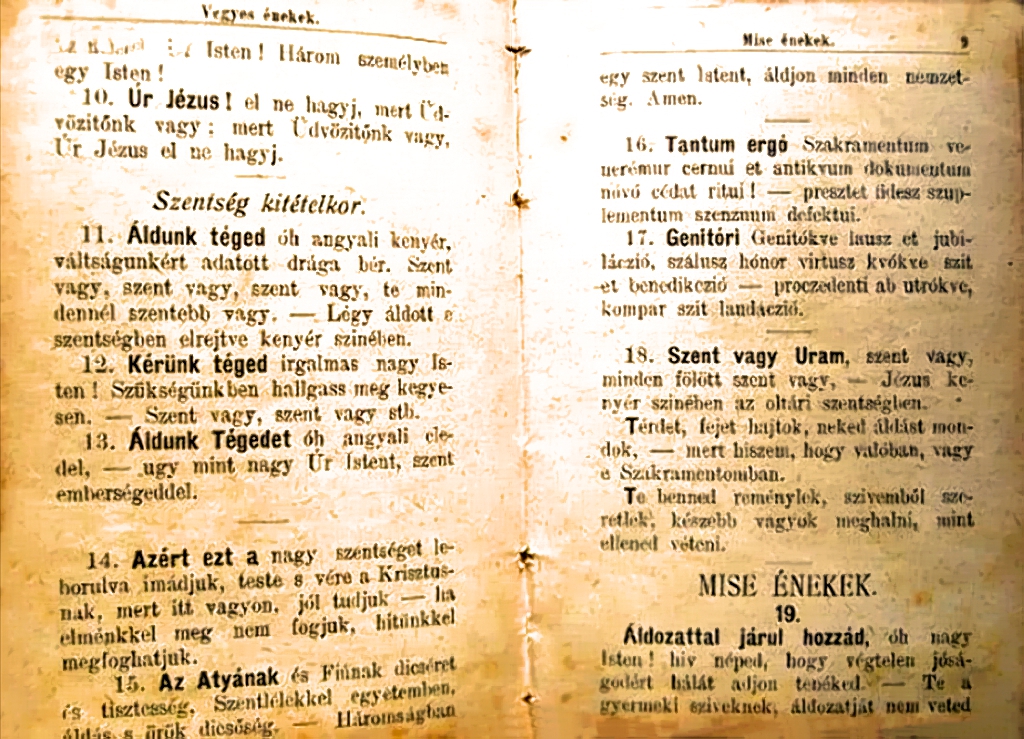 Vegyes énekek.
Isten! Három személyben
egy Isten!
10. Úr Jézus! el ne hagyj, mert Üd-
vözitőnk vagy; mert Üdvözitőnk vagy,
Úr Jézus el ne hagyj.
Szentség kitételkor.
11. Áldunk téged óh angyali kenyér,
váltságunkért adatott drága bér. Szent
vagy, szent vagy, szent vagy, te min-
dennél szentebb vagy. — Légy áldott e
szentségben elrejtve kenyér szinében.
12. Kérünk téged irgalmas nagy Is-
ten! Szükségünkben hallgass meg kegye-
sen. — Szent vagy, szent vagy stb.
13. Áldunk Tégedet óh angyali ele-
del, — ugy mint nagy Úr Istent, szent
emberségeddel.
14. Azért ezt a nagy szentséget le-
borulva imádjuk, teste s vére a Krisztus-
nak, mert itt vagyon, jól tudjuk — ha
elménkkel meg nem fogjuk, hitünkkel
megfoghatjuk.
15. Az Atyának és Fiúnak dicséret
és tisztesség, Szentlélekkel egyetemben,
áldás s örök dicsőség, — Háromságban
Mise énekek. 9
egy szent Istent, áldjon minden nemzet-
ség. Amen.
16. Tantum ergó Szakramentum ve-
nerémur cernui et antikvum dokumentum
nóvó cédat ritui! — presztet fidesz szup-
lementum szenznum defektui.
17. Genitóri Genitókve lausz et jubi-
láczió, szálusz hónor virtusz kvókve szit
et benedikczió — proczedenti ab utrókve,
kompar szit laudáczió.
18. Szent vagy Uram, szent vagy,
minden fölött szent vagy, — Jézus ke-
nyér szinében az oltári szentségben.
Térdet, fejet hajtok, neked áldást mon-
dok, — mert hiszem, hogy valóban, vagy
e Szakramentomban.
Te benned reménylek, szivemből sze-
retlek, készebb vagyok meghalni, mint
ellened véteni.
MISE ÉNEKEK.
19.
Áldozattal járul hozzád, óh nagy
Isten! hiv néped, hogy végtelen jósá-
godért hálát adjon tenéked. — Te a
gyermeki sziveknek, áldozatját nem veted